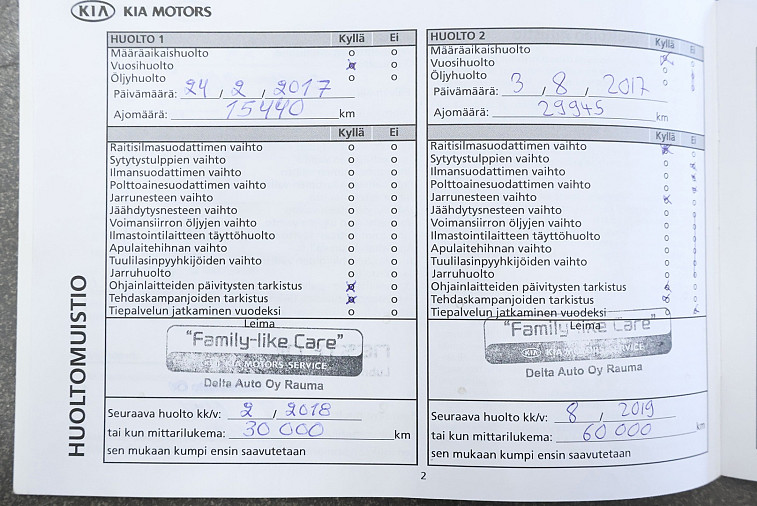 KIA KIA MOTORS
HUOLTOMUISTIO
HUOLTO 1 Kyllä Ei
Määräaikaishuolto o o
Vuosihuolto x o
Öljyhuolto o o
Päivämäärä: 24 , 2 , 2017
Ajomäärä: 15440 km
Kyllä Ei
Raitisilmasuodattimen vaihto o o
Sytytystulppien vaihto o o
Ilmansuodattimen vaihto o o
Polttoainesuodattimen vaihto o o
Jarrunesteen vaihto o o
Jäähdytysnesteen vaihto o o
Voimansiirron öljyjen vaihto o o
Ilmastointilaitteen täyttöhuolto o o
Apulaitehihnan vaihto o o
Tuulilasinpyyhkijöiden vaihto o o
Jarruhuolto o o
Ohjainlaitteiden päivitysten tarkistus x o
Tehdaskampanjoiden tarkistus x o
Tiepalvelun jatkaminen vuodeksi o o
Leima
"Family-like Care"
KIA MOTORS SERVICE
Delta Auto Oy Rauma
Seuraava huolto kk/v: 2 / 2018
tai kun mittarilukema: 30 000 km
sen mukaan kumpi ensin saavutetaan
HUOLTO 2 Kyllä Ei
Määräaikaishuolto
Vuosihuolto
Öljyhuolto
Päivämäärä: 3 , 8 , 2017
Ajomäärä: 29945 km
Kyllä Ei
Raitisilmasuodattimen vaihto
Sytytystulppien vaihto
Ilmansuodattimen vaihto
Polttoainesuodattimen vaihto
Jarrunesteen vaihto
Jäähdytysnesteen vaihto
Voimansiirron öljyjen vaihto
Ilmastointilaitteen täyttöhuolto
Apulaitehihnan vaihto
Tuulilasinpyyhkijöiden vaihto
Jarruhuolto
Ohjainlaitteiden päivitysten tarkistus
Tehdaskampanjoiden tarkistus
Tiepalvelun jatkaminen vuodeksi
Leima
"Family-like Care"
KIA KIA MOTORS SERVICE
Delta Auto Oy Rauma
Seuraava huolto kk/v: 8 / 2019
tai kun mittarilukema: 60 000 km
sen mukaan kumpi ensin saavutetaan
2